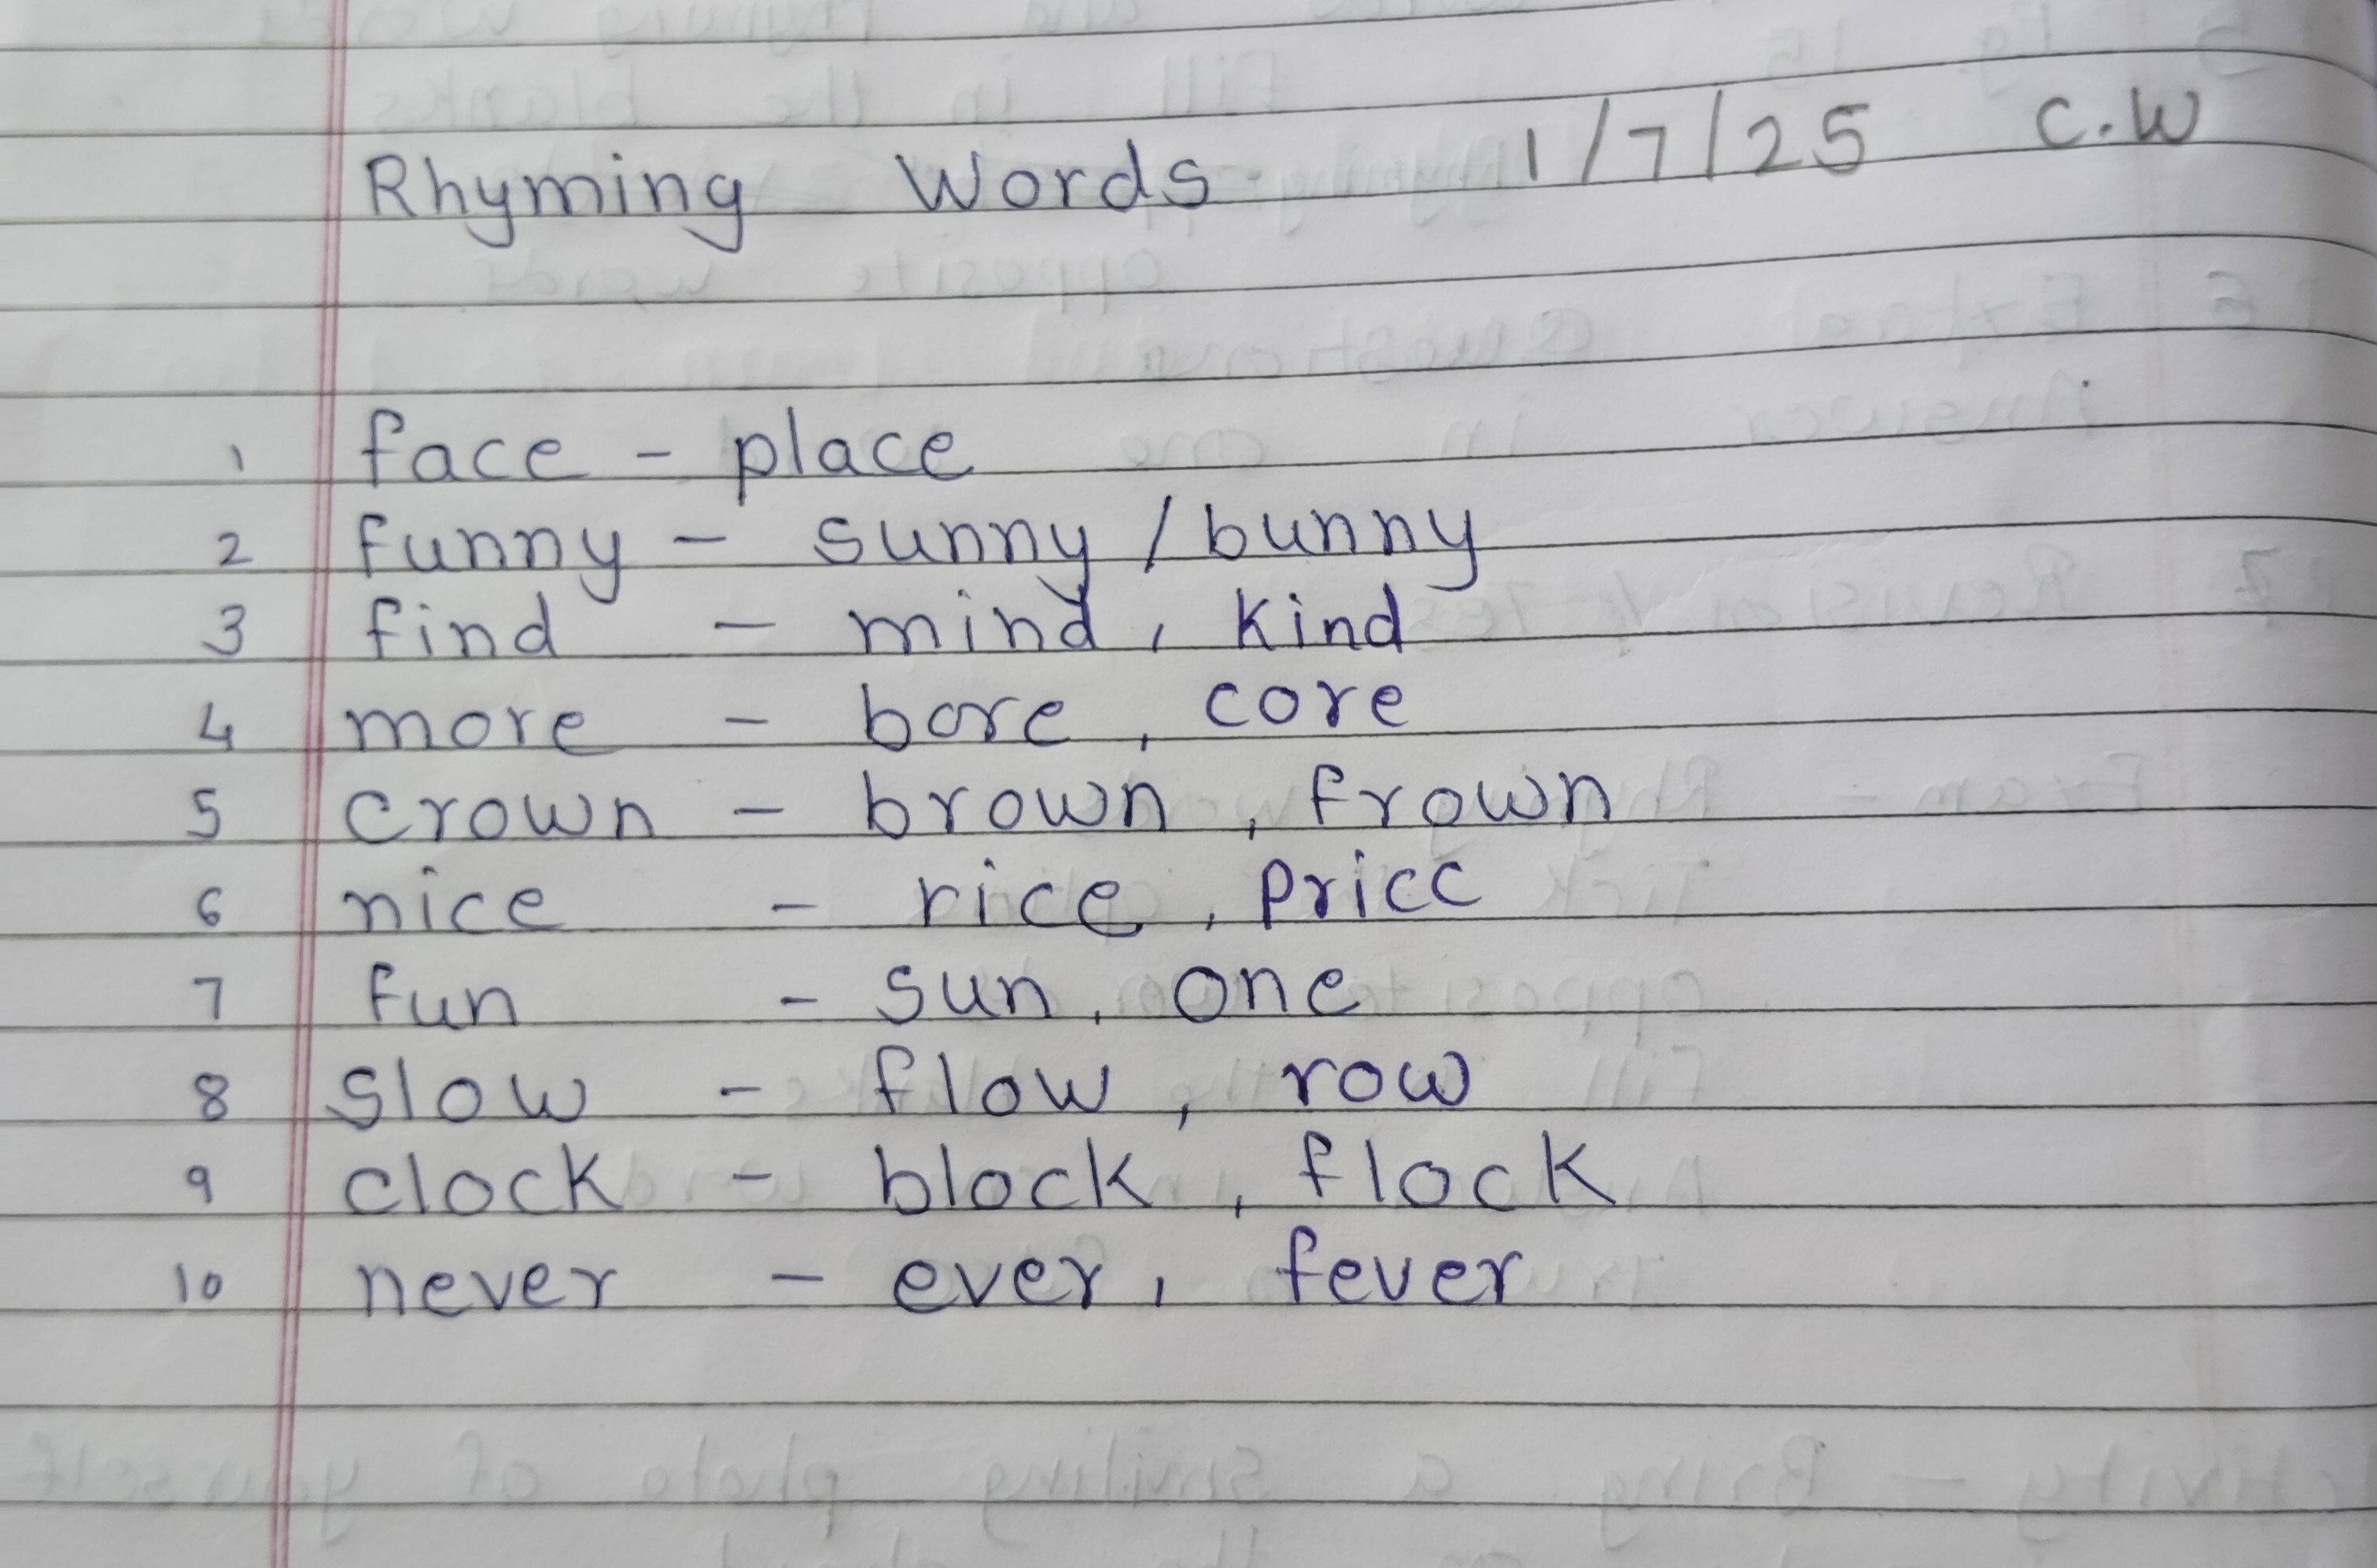 Rhyming Words 1/7/25 C.W
1 face - place
2 funny - sunny / bunny
3 find - mind, kind
4 more - bore, core
5 crown - brown, frown
6 nice - rice, price
7 fun - sun, one
8 slow - flow, row
9 clock - block, flock
10 never - ever, fever